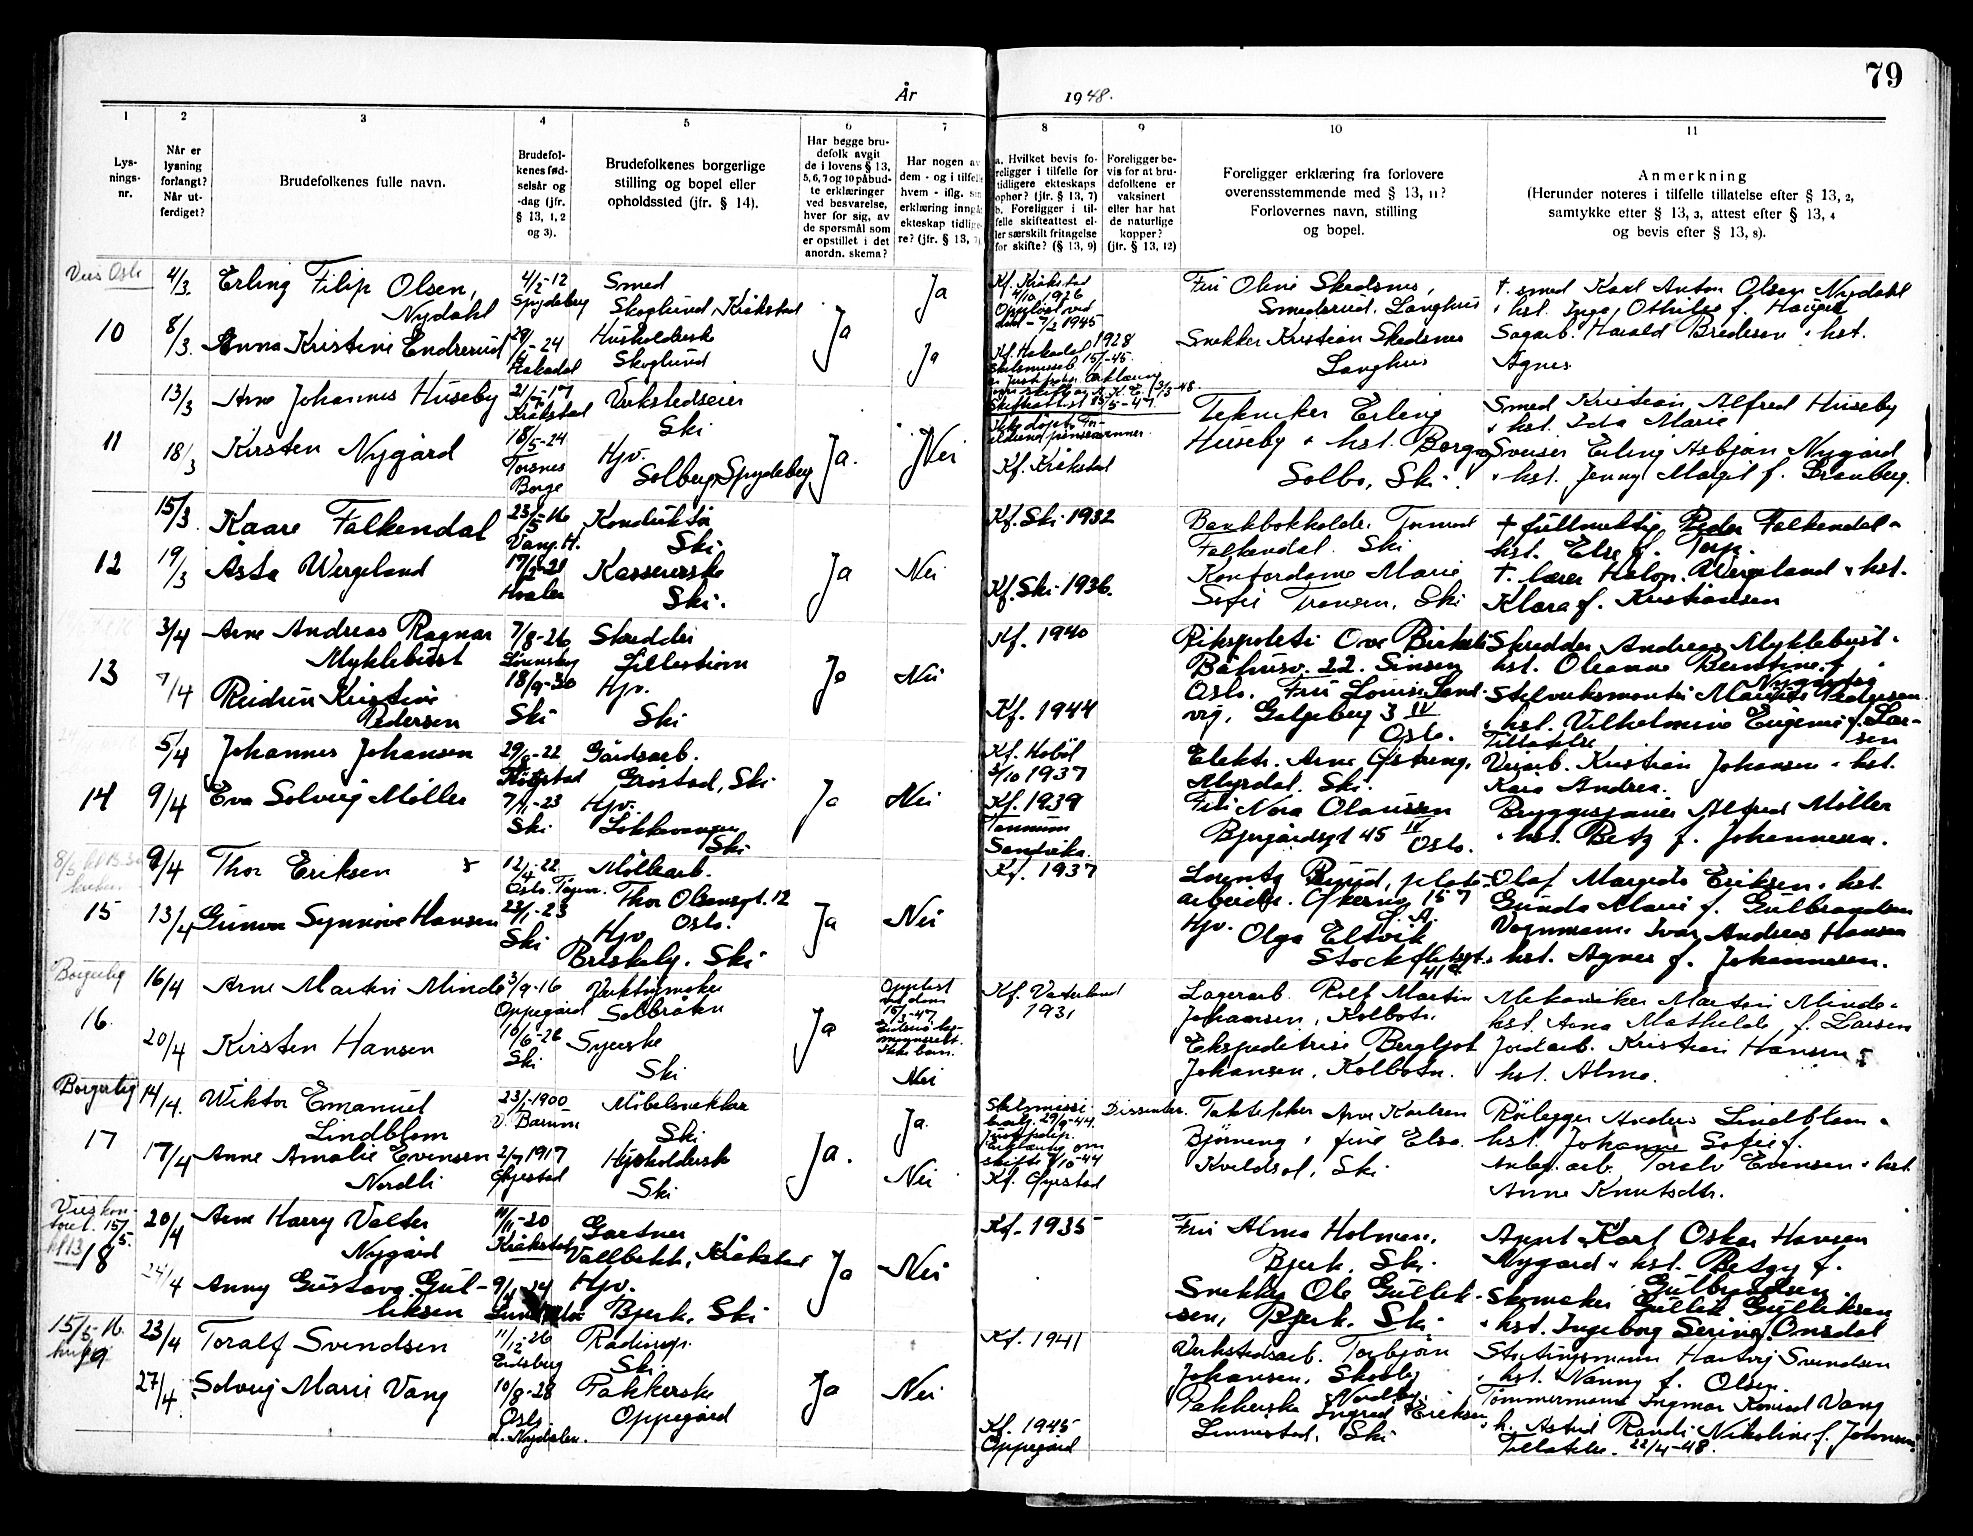 79
År 1948.
1 2 3 4 5 6 7 8 9 10 11
Lys-
nings-
nr.
Når er
lysning
forlangt?
Når ut-
ferdiget?
Brudefolkenes fulle navn.
Brudefol-
kenes fød-
selsår og
-dag (jfr.
§ 13, 1, 2
og 3).
Brudefolkenes borgerlige
stilling og bopel eller
opholdssted (jfr. § 14).
Har begge bru-
defolk avgit
de i lovens § 13,
5, 6, 7 og 10 påbud-
te erklæringer
ved besvarelse,
hver for sig, av
de spørsmål som
er opstillet i det
anordn. skema?
Har nogen av
dem - og i tilfelle
hvem - iflg. sin
erklæring inngå
ekteskap tidlige-
re? (jfr. § 13, 7)
a. Hvilket bevis fo-
religger i tilfelle for
tidligere ekteskaps
ophør? (jfr. § 13, 7)
b. Foreligger i til-
felle skifteattest el-
ler særskilt fritagelse
for skifte? (§ 13, 9)
Foreligger be-
vis for at bru-
defolkene er
vaksinert
eller har hat
de naturlige
kopper?
(jfr. § 13, 12)
Foreligger erklæring fra forlovere
overensstemmende med § 13, 11?
Forlovernes navn, stilling
og bopel.
Anmerkning
(Herunder noteres i tilfelle tillatelse efter § 13, 2,
samtykke efter § 13, 3, attest efter § 13, 4
og bevis efter § 13, 8).
10
4/3.
8/3.
Erling Filip Olsen,
Nydahl
Anna Kristine Endrerud
4/2-12
Spydeberg
-24
Hakadal
Smed
Skoglund, Kråkstad
Husholderske
Skoglund
Ja
Ja
Ja
Kf. Kråkstad
4/10 1926
Oppløst ved
død - 7/2 1945
Kf. Hakadal 1928
Fru Oline Skedsnes,
Smederud, Langhus
Snekker Kristian Skedsnes
Langhus
† smed Karl Anton Olsen Nydahl
hst. Inga Othilie f. Haugen
Sagarb. Harald Bredesen & hst.
Agnes
11
13/3
18/3
Arne Johannes Huseby
Kirsten Nygård
-17
Kråkstad
18/5-24
Torsnes
Borge
Verkstedseier
Ski
Hjv.
Solberg, Spydeberg
Ja.
Nei
Kf. Kråkstad
Tekniker Erling
Huseby & hst. Borgny
Solbo, Ski.
Smed Kristian Alfred Huseby
& hst. Ida Marie
Sveiser Erling Asbjøn Nygård
& hst. Jenny Margit f. Granberg.
12
15/3.
19/3
Kaare Falkendal
Åsta Wergeland
23/5-16
Vang. H.
17/2-21
Hvaler
Konduktør
Ski
Kassererske
Ski.
Ja
Nei
Kf. Ski 1932
Kf. Ski 1936.
Bankbokholder Tormod
Falkendal. Ski
Kontordame Marie
Sofie Fransen, Ski
† fullmektig Peder Falkendal &
hst. Else f. Torp.
†. lærer Halvor Wergeland & hst.
Klara f. Kristiansen
13
3/4
7/4
Arne Andreas Ragnar
Myklebust
Reidun Kristine
Pedersen
7/8-26
Lørenskog
18/9-30
Ski
Skredder
Lillestrøm
Hjv.
Ski
Ja
Nei
Kf. 1940
Kf. 1944
Rikspoliti Ove Birkeli
Båhusv. 22. Sinsen
Oslo. Fru Louise Sand-
vig, Galgeberg 3 IV
Oslo.
Skredder Andreas Myklebust &
hst. Oleanne Berntine f.
Nygårdsey
Stelverksmontør Mauritz Pedersen
& hst. Vilhelmine Eugenie f. Lar-
sen
Tillatelse
14
5/4
9/4
Johannes Johansen
Eva Solveig Møller
29/8-22
Kråkstad
7/1-23
Ski
Gårdsarb.
Grøstad, Ski
Hjv.
Løkkevangen
Ski
Ja
Nei
Kf. Hobøl
3/10 1937
Kf. 1939
Tannum
Sandvika.
Elektr. Arne Østreng,
Myrdal. Ski.
Fru Nora Olaussen
Bjergårdsgt 45 IV
Oslo.
Veiarb. Kristian Johansen & hst.
Kaia Andrea.
Bryggesjauer Alfred Møller
& hst. Betzy f. Johannesen.
15
9/4
13/4
Thor Eriksen
Gunvor Synnøve Hansen
12/4-22
Oslo. Tøyen.
23/1-23
Ski
Møllearb.
Thor Olsensgt. 12
Oslo.
Hjv.
Briskeby. Ski
Ja
Nei
Kf. 1937
Lorentz Ruud, plate-
arbeider. Økernv. 157
Hjv.
Olga Eltvik
Stockfletsgt.
41a
Olaf Margido Eriksen & hst.
Gunda Marie f. Gulbrandsen
Vognmann Ivar Andreas Hansen
& hst. Agnes f. Johannesen.
Borgerlig
16.
16/4
20/4
Arne Martin Minde
Kirsten Hansen
3/9-16
Oppegård
16/6-26
Ski
Verktøymaker
Solbråten
Syerske
Ski
Ja
Oppløst
ved dom
Ikke barn.
Nei
Kf. Vaterland
1931
Lagerarb. Rolf Martin
Johansen, Kolbotn.
Ekspeditrise Bergljot
Johansen, Kolbotn.
Mekaniker Martin Minde &
hst. Anna Mathilde, f. Larsen
Jordarb. Kristian Hansen &
hst. Alma.
Borgerlig
17
14/4.
17/4
Wiktor Emanuel
Lindblom
Anne Amalie Evensen
Nordli
23/-1900
V. Bærum
2/7 1917
Øyestad
Møbelsnekker
Ski
Husholdersk
Ski
Ja.
Ja.
Nei
Kf. Øyestad
Dissenter.
Taktekker Arne Karlsen
Bjørneng & frue Elsa.
Kveldsol, Ski.
Rørlegger Anders Lindblom &
hst. Johanne Sofie f.
Anleg. arb. Toralv Evensen & hst
Anne Knutsdtr.
Vies kon-
toret. 15/5.
kl 13
18
20/4
24/4
Arne Harry Valter
Nygård
Anny Gustava Gul-
liksen
11/11-20
Kråkstad
9/4-24
Gartner
Vallbekk, Kråkstad
Hjv.
Bjerk, Ski
Ja
Nei
Kf. 1935
Fru Alma Holmen,
Bjerk, Ski.
Snekker Ole Gullik-
sen, Bjerk. Ski
Agent Karl Oskar Hansen
Nygård & hst. Betzy f.
Gulbrandsen.
Skomaker Gullik Gulliksen
& hst. Ingeborg Serine f. Onsdal
15/5-16.
19
23/4
27/4.
Toralf Svendsen
Solveig Marie Vang
11/12-26
Eidsberg
10/8-28
Oslo
n. Nydalen.
Radiorep.
Ski.
Pakkerske
Oppegård
Ja
Nei
Kf. 1941
Kf. 1945
Oppegård
Verkstedsarb. Torbjørn
Johansen, Skoleby
Nordby.
Pakkerske Ingrid Eriksen
Linnestad, Ski
Stortingsmann Hartvig Svendsen
& hst. Nanny f. Olsen.
Tømmermann Ingmar Konrad Vang
& h. Astrid Randi Nikoline f. Johnsen
Tillatelse. 22/4-48.